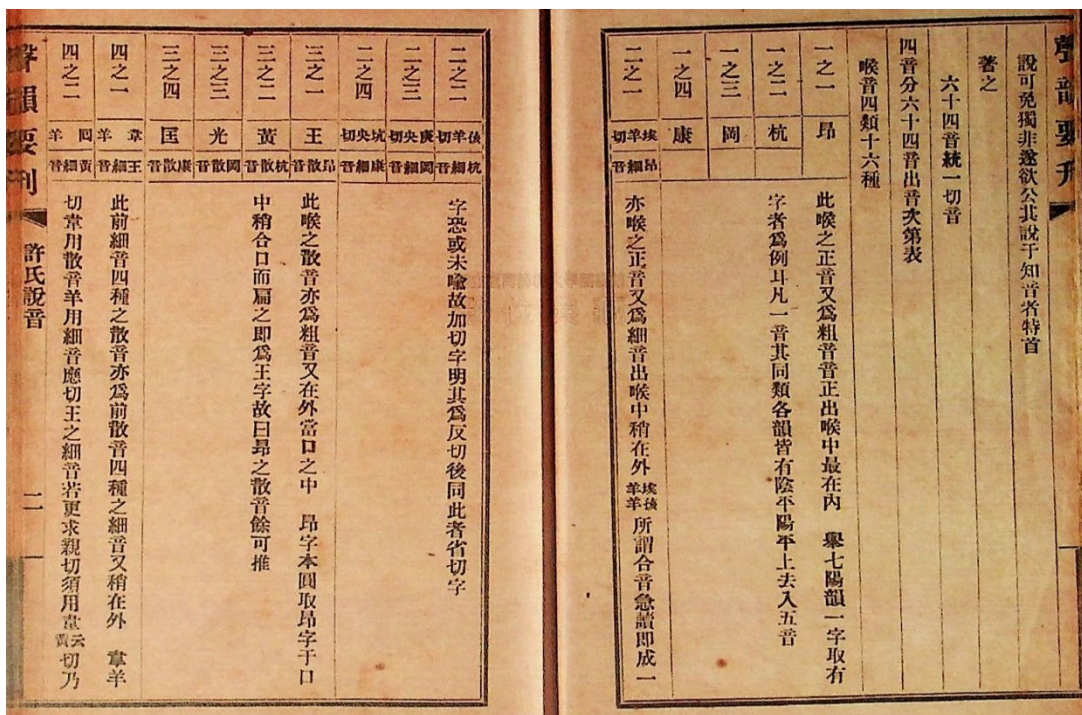 聲韻要刊
說可免獨非遂欲公其說于知音者特首
著之
六十四音統一切音
四音分六十四音出音次第表
喉音四類十六種
一之一 昂 此喉之正音又爲粗音音正出喉中最在內 舉七陽韻一字取有
一之二 杭 字者爲例耳凡一音其同類各韻皆有陰平陽平上去入五音
一之三 岡
一之四 康
二之一 埃羊切 昂細音 亦喉之正音又爲細音出喉中稍在外 埃羊侯羊 所謂合音急讀即成一
二之二 侯羊切 杭細音 字恐或未喻故加切字明其爲反切後同此者省切字
二之三 庚央切 岡細音
二之四 坑央切 康細音
三之一 王 昂散音 此喉之散音亦爲粗音又在外當口之中 昂字本圓取昂字于口
三之二 黃 杭散音 中稍合口而扁之即爲王字故曰昂之散音餘可推
三之三 光 岡散音
三之四 匡 康散音
四之一 韋羊 王細音 此前細音四種之散音亦爲前散音四種之細音又稍在外 韋羊
四之二 囘羊 黃細音 切韋用散音羊用細音應切王之細音若更求親切須用韋云黃切乃
聲韻要刊 許氏說音 二